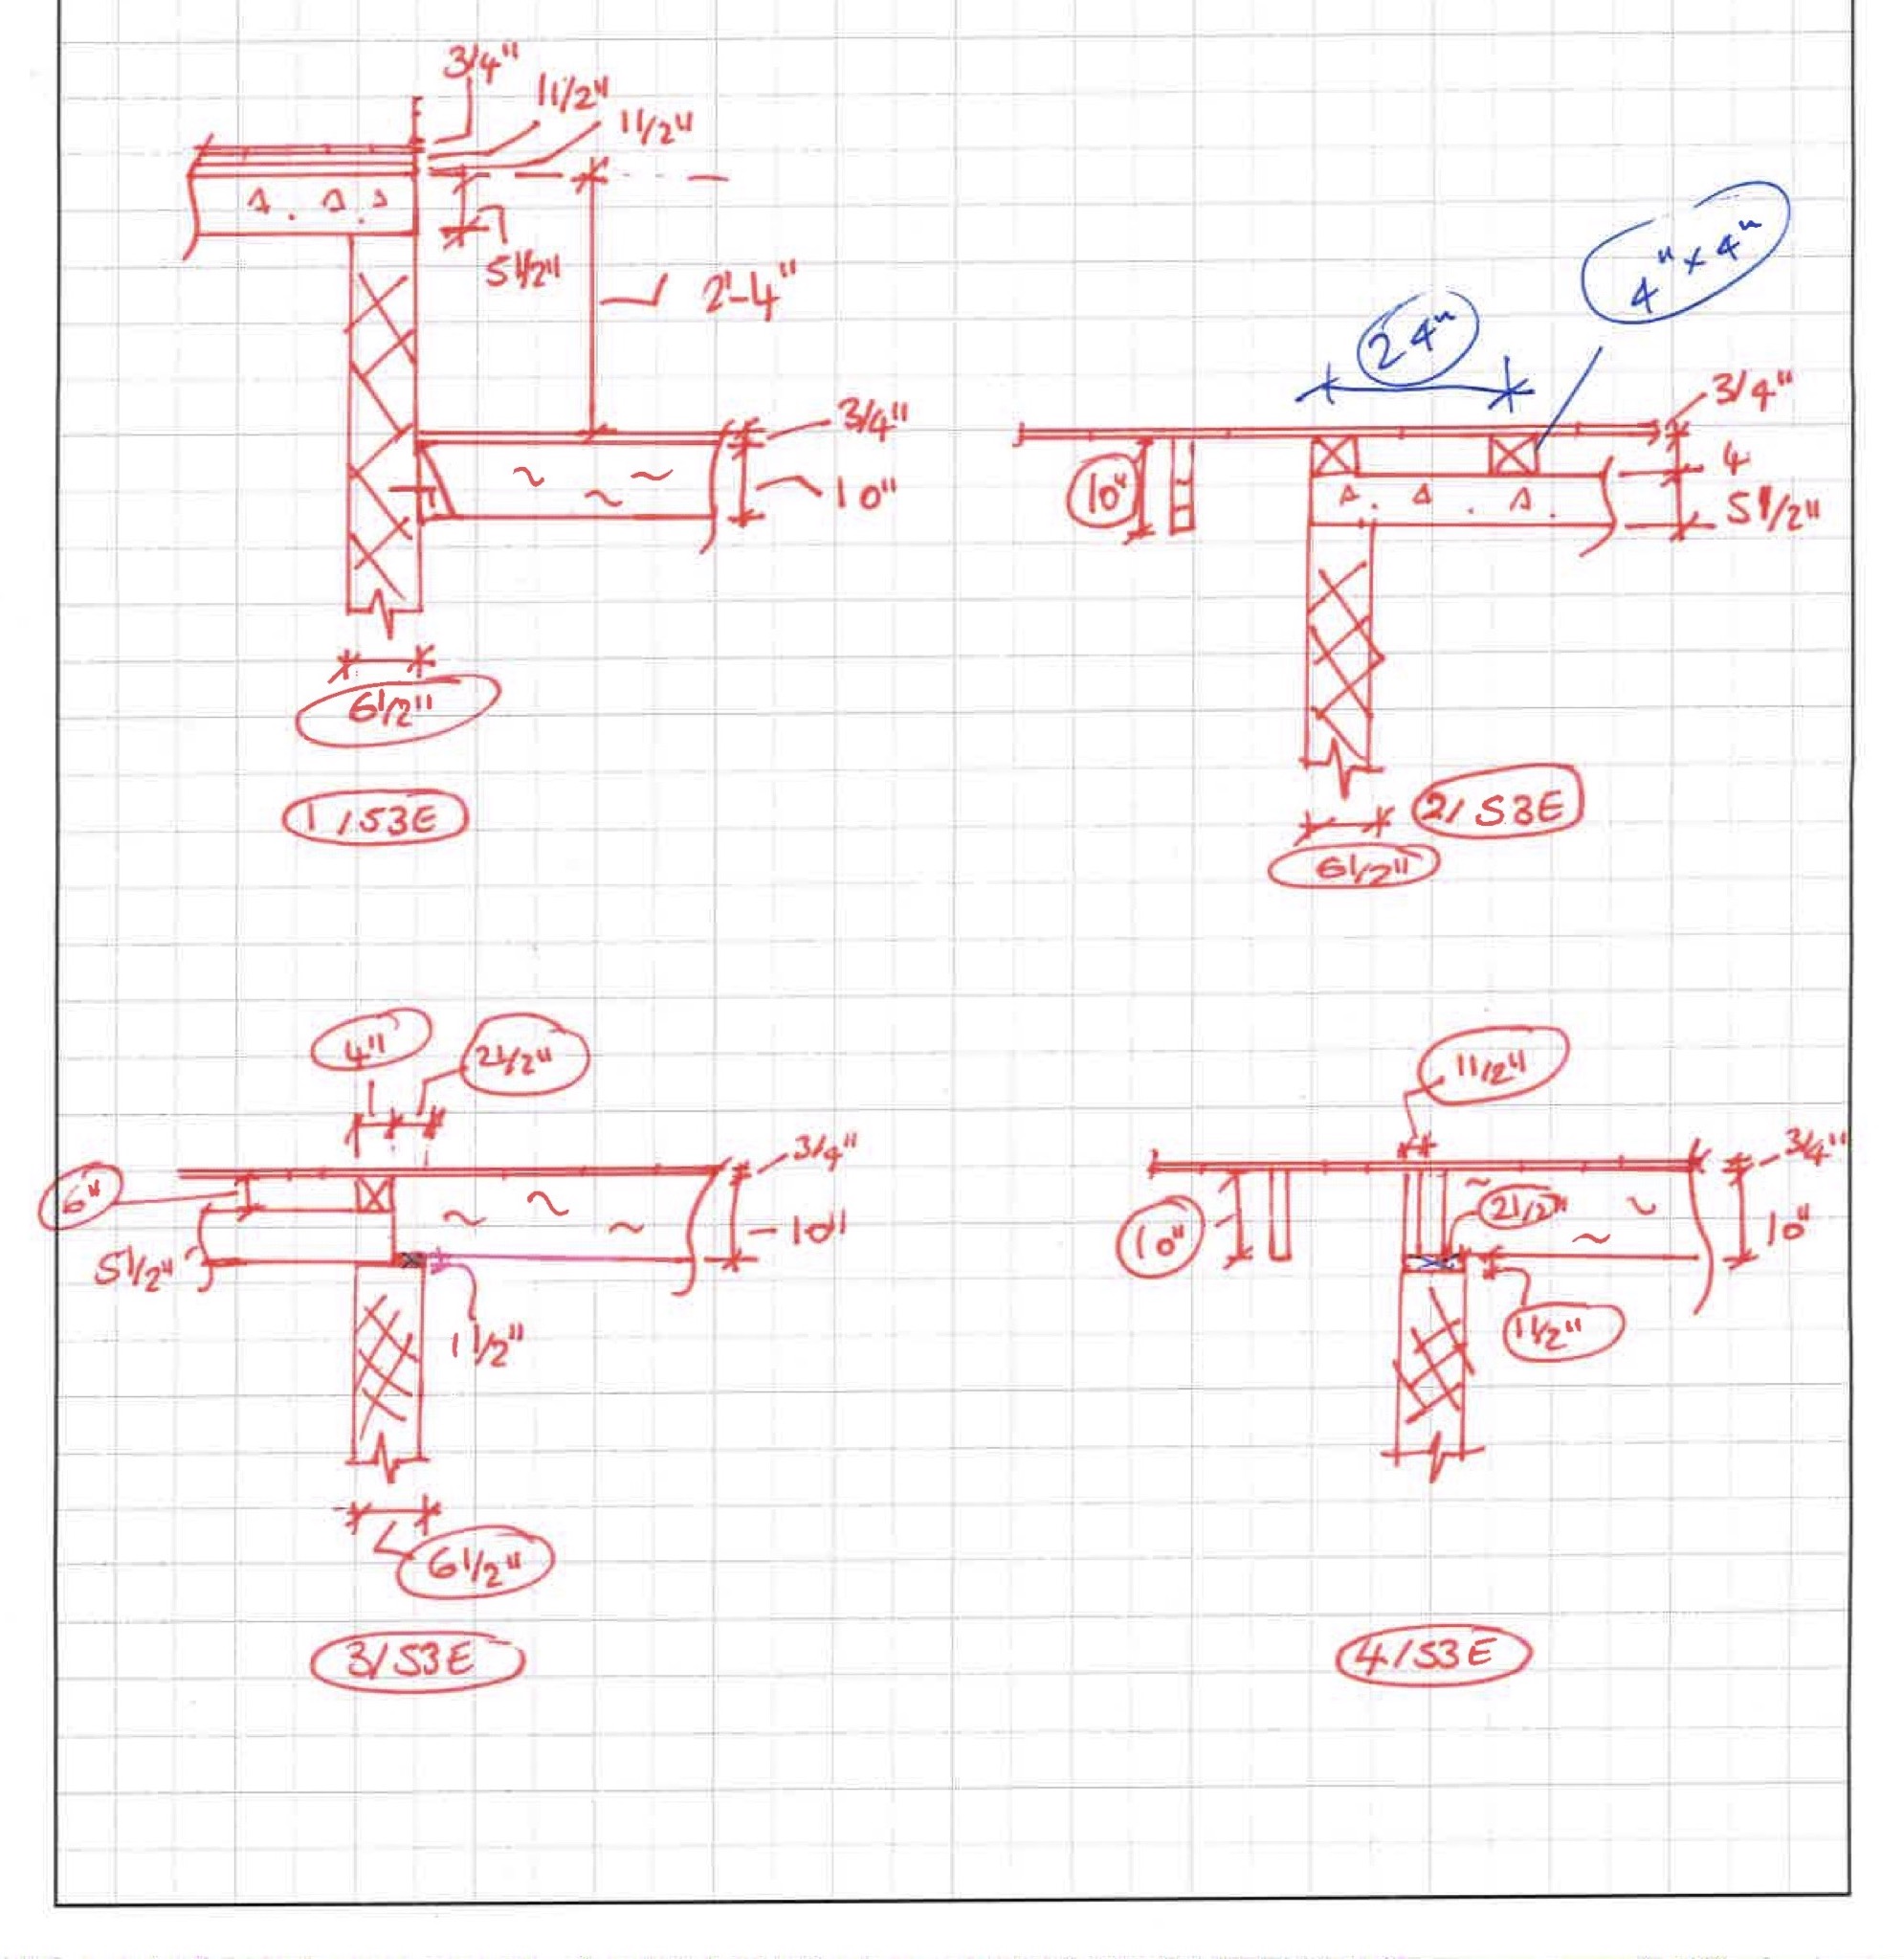 3/4"
11/2"
11/2"
51/2"
2'-4"
3/4"
10"
61/2"
1/S3E
24"
4"x4"
3/4"
10"
4
51/2"
2/S3E
61/2"
4"
21/2"
6"
3/4"
10"
51/2"
11/2"
61/2"
3/S3E
11/2"
3/4"
21/2"
10"
10"
11/2"
4/S3E